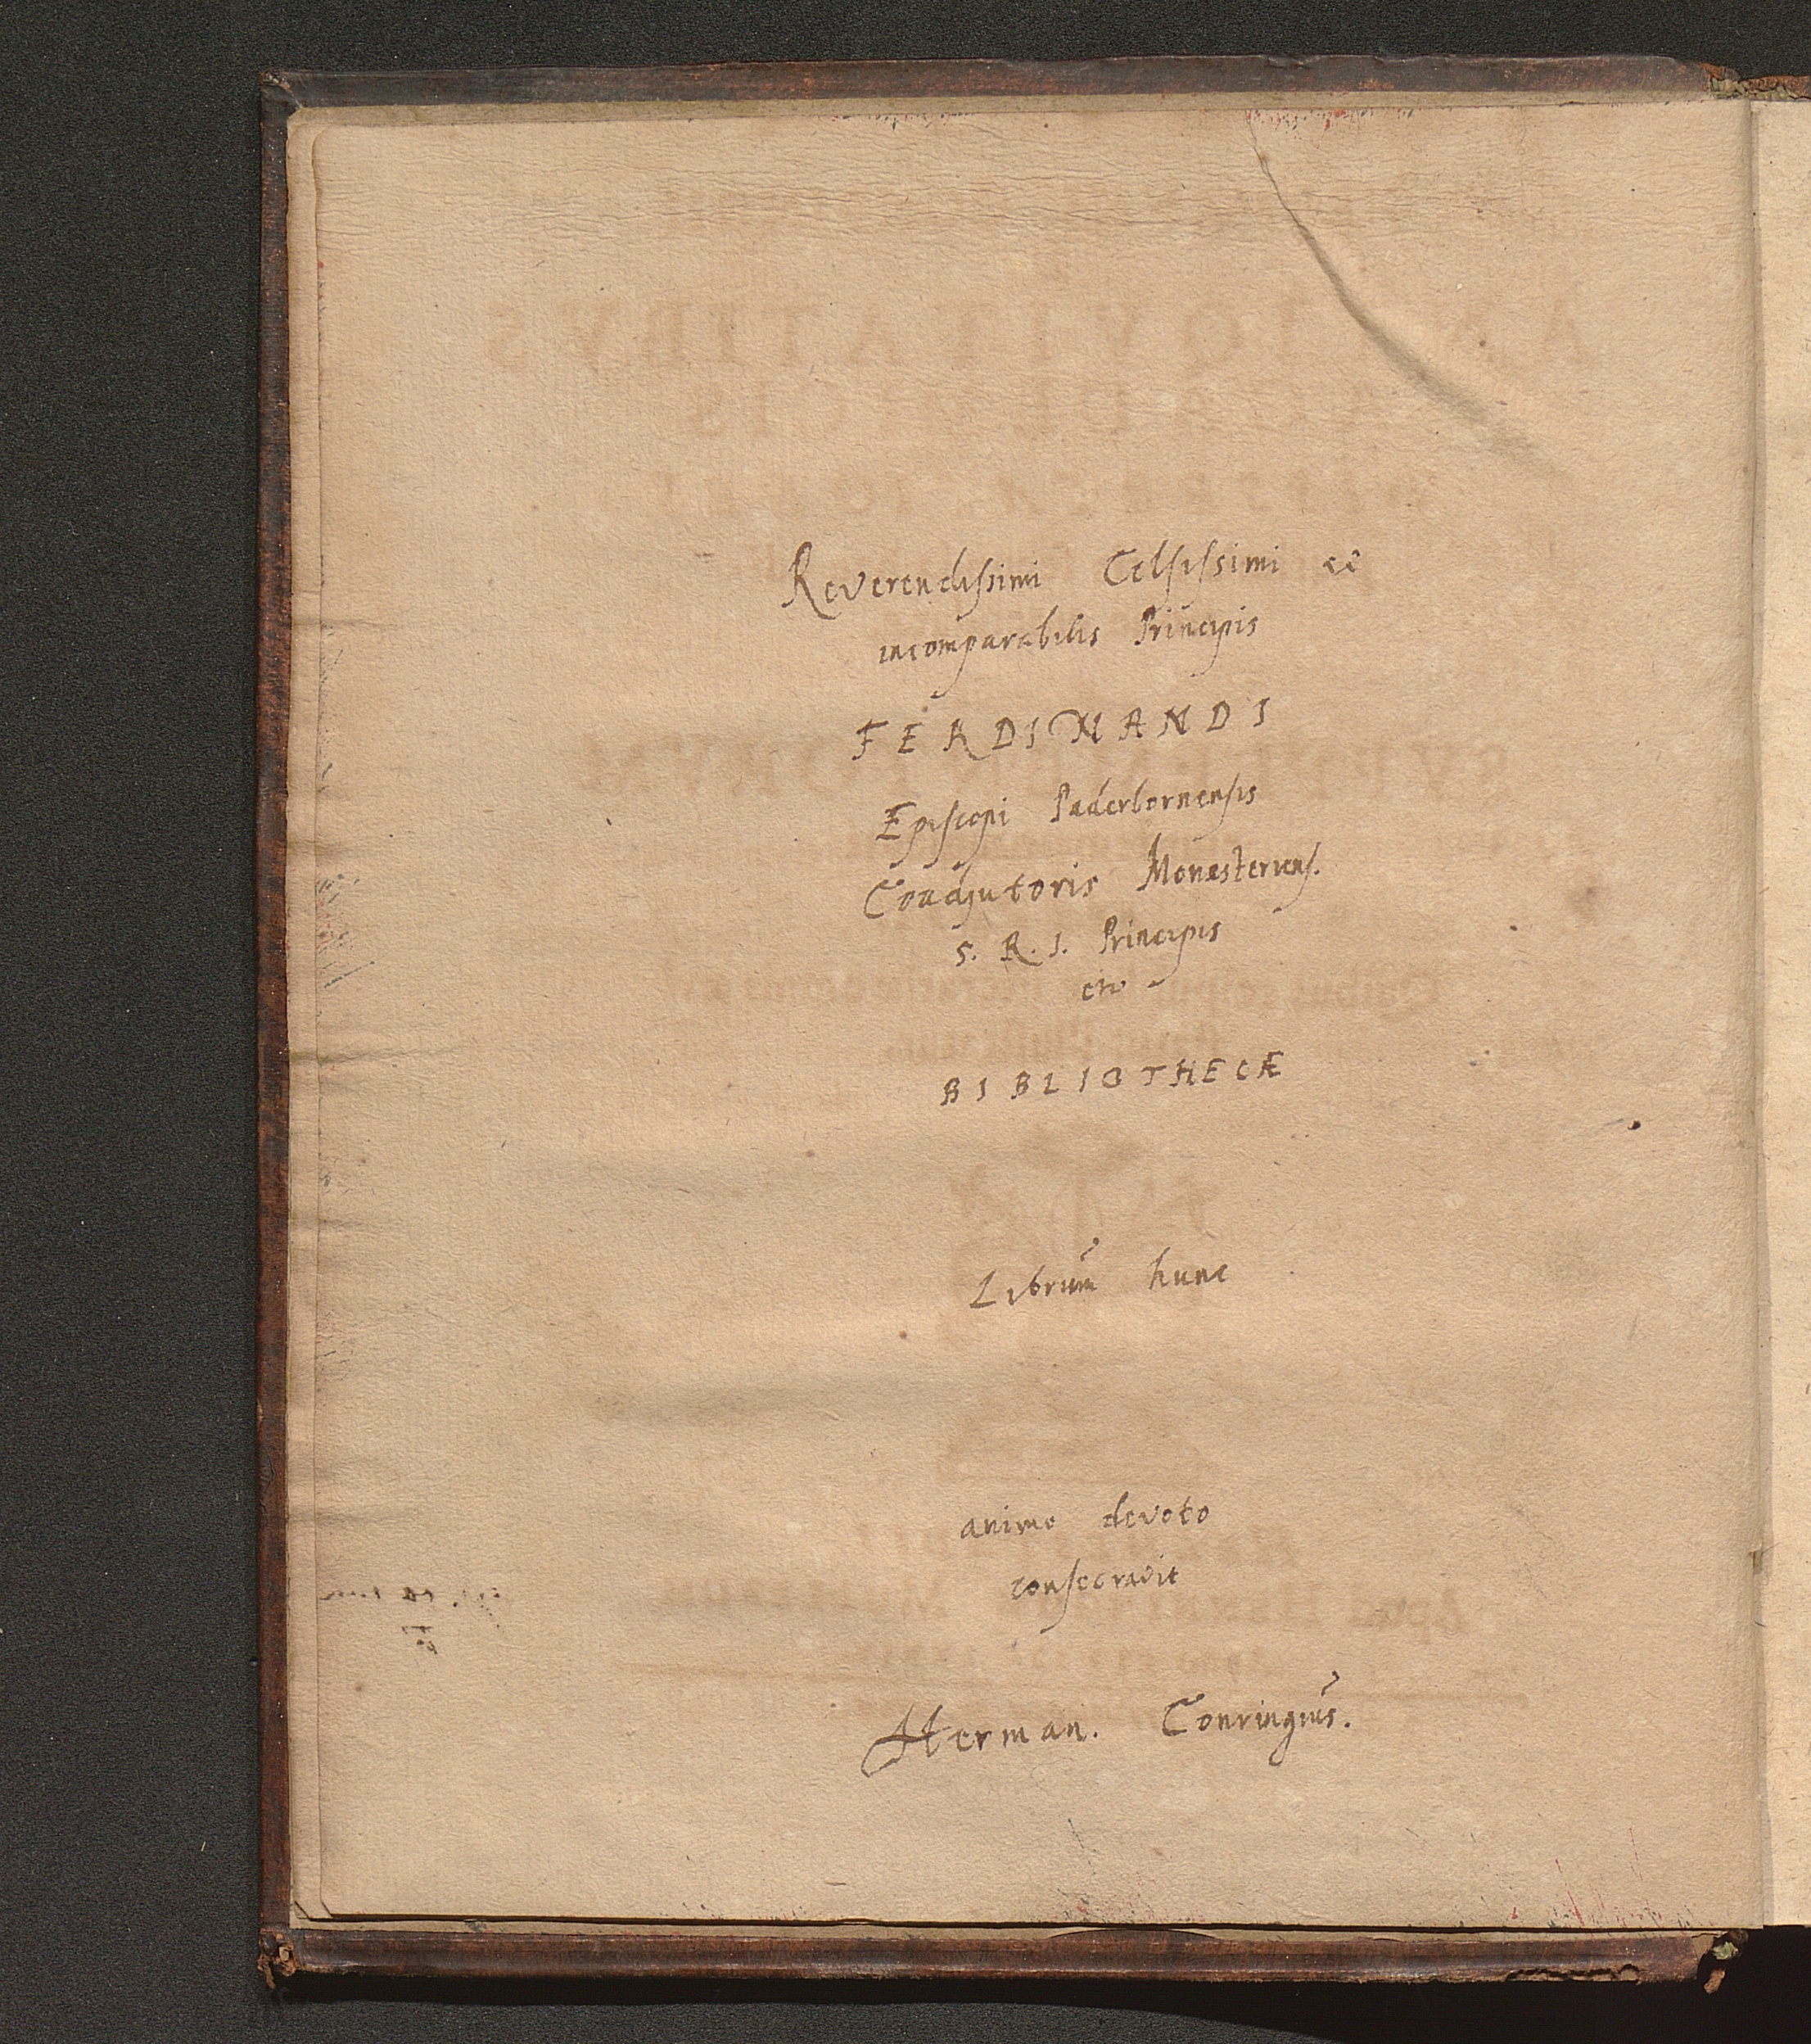 Reverendissimi Celsissimi ac
incomparabilis Principis
FERDINANDI
Episcopi Paderbornensis
Coadjutoris Monasteriens.
S. R. I. Principis
etc
BIBLIOTHECÆ
Librum hunc
animo devoto
consecravit
Herman. Conringius.